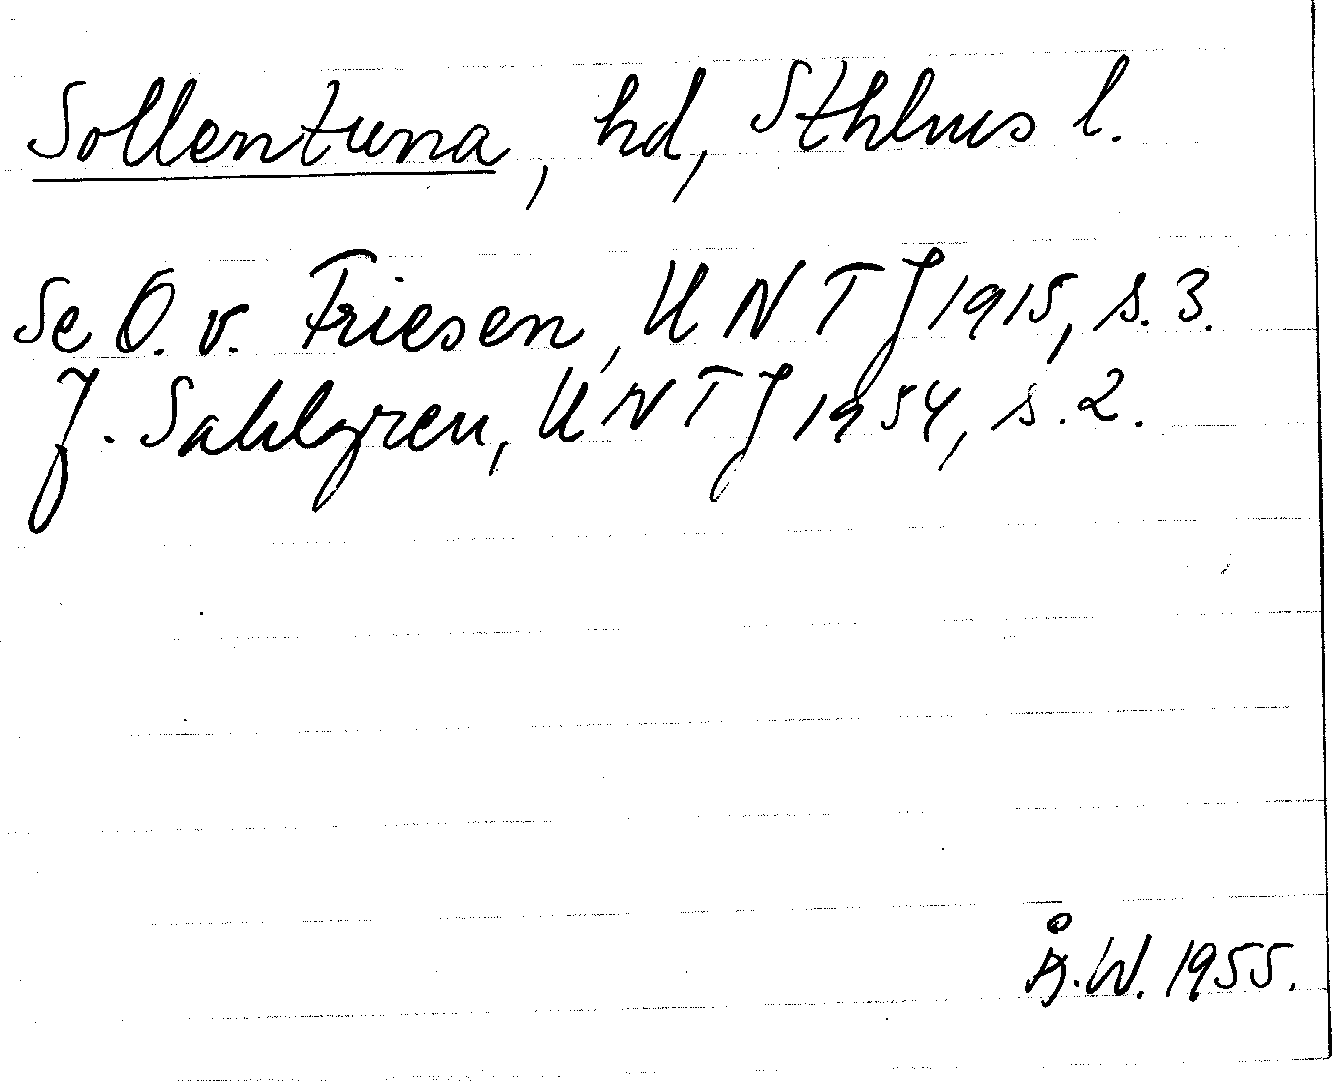 Sollentuna, hd, Sthlms l.
Se O. v. Friesen, UNTJ 1915, s. 3.
J. Sahlgren, UNTJ 1954, s. 2.
Å.W. 1955.